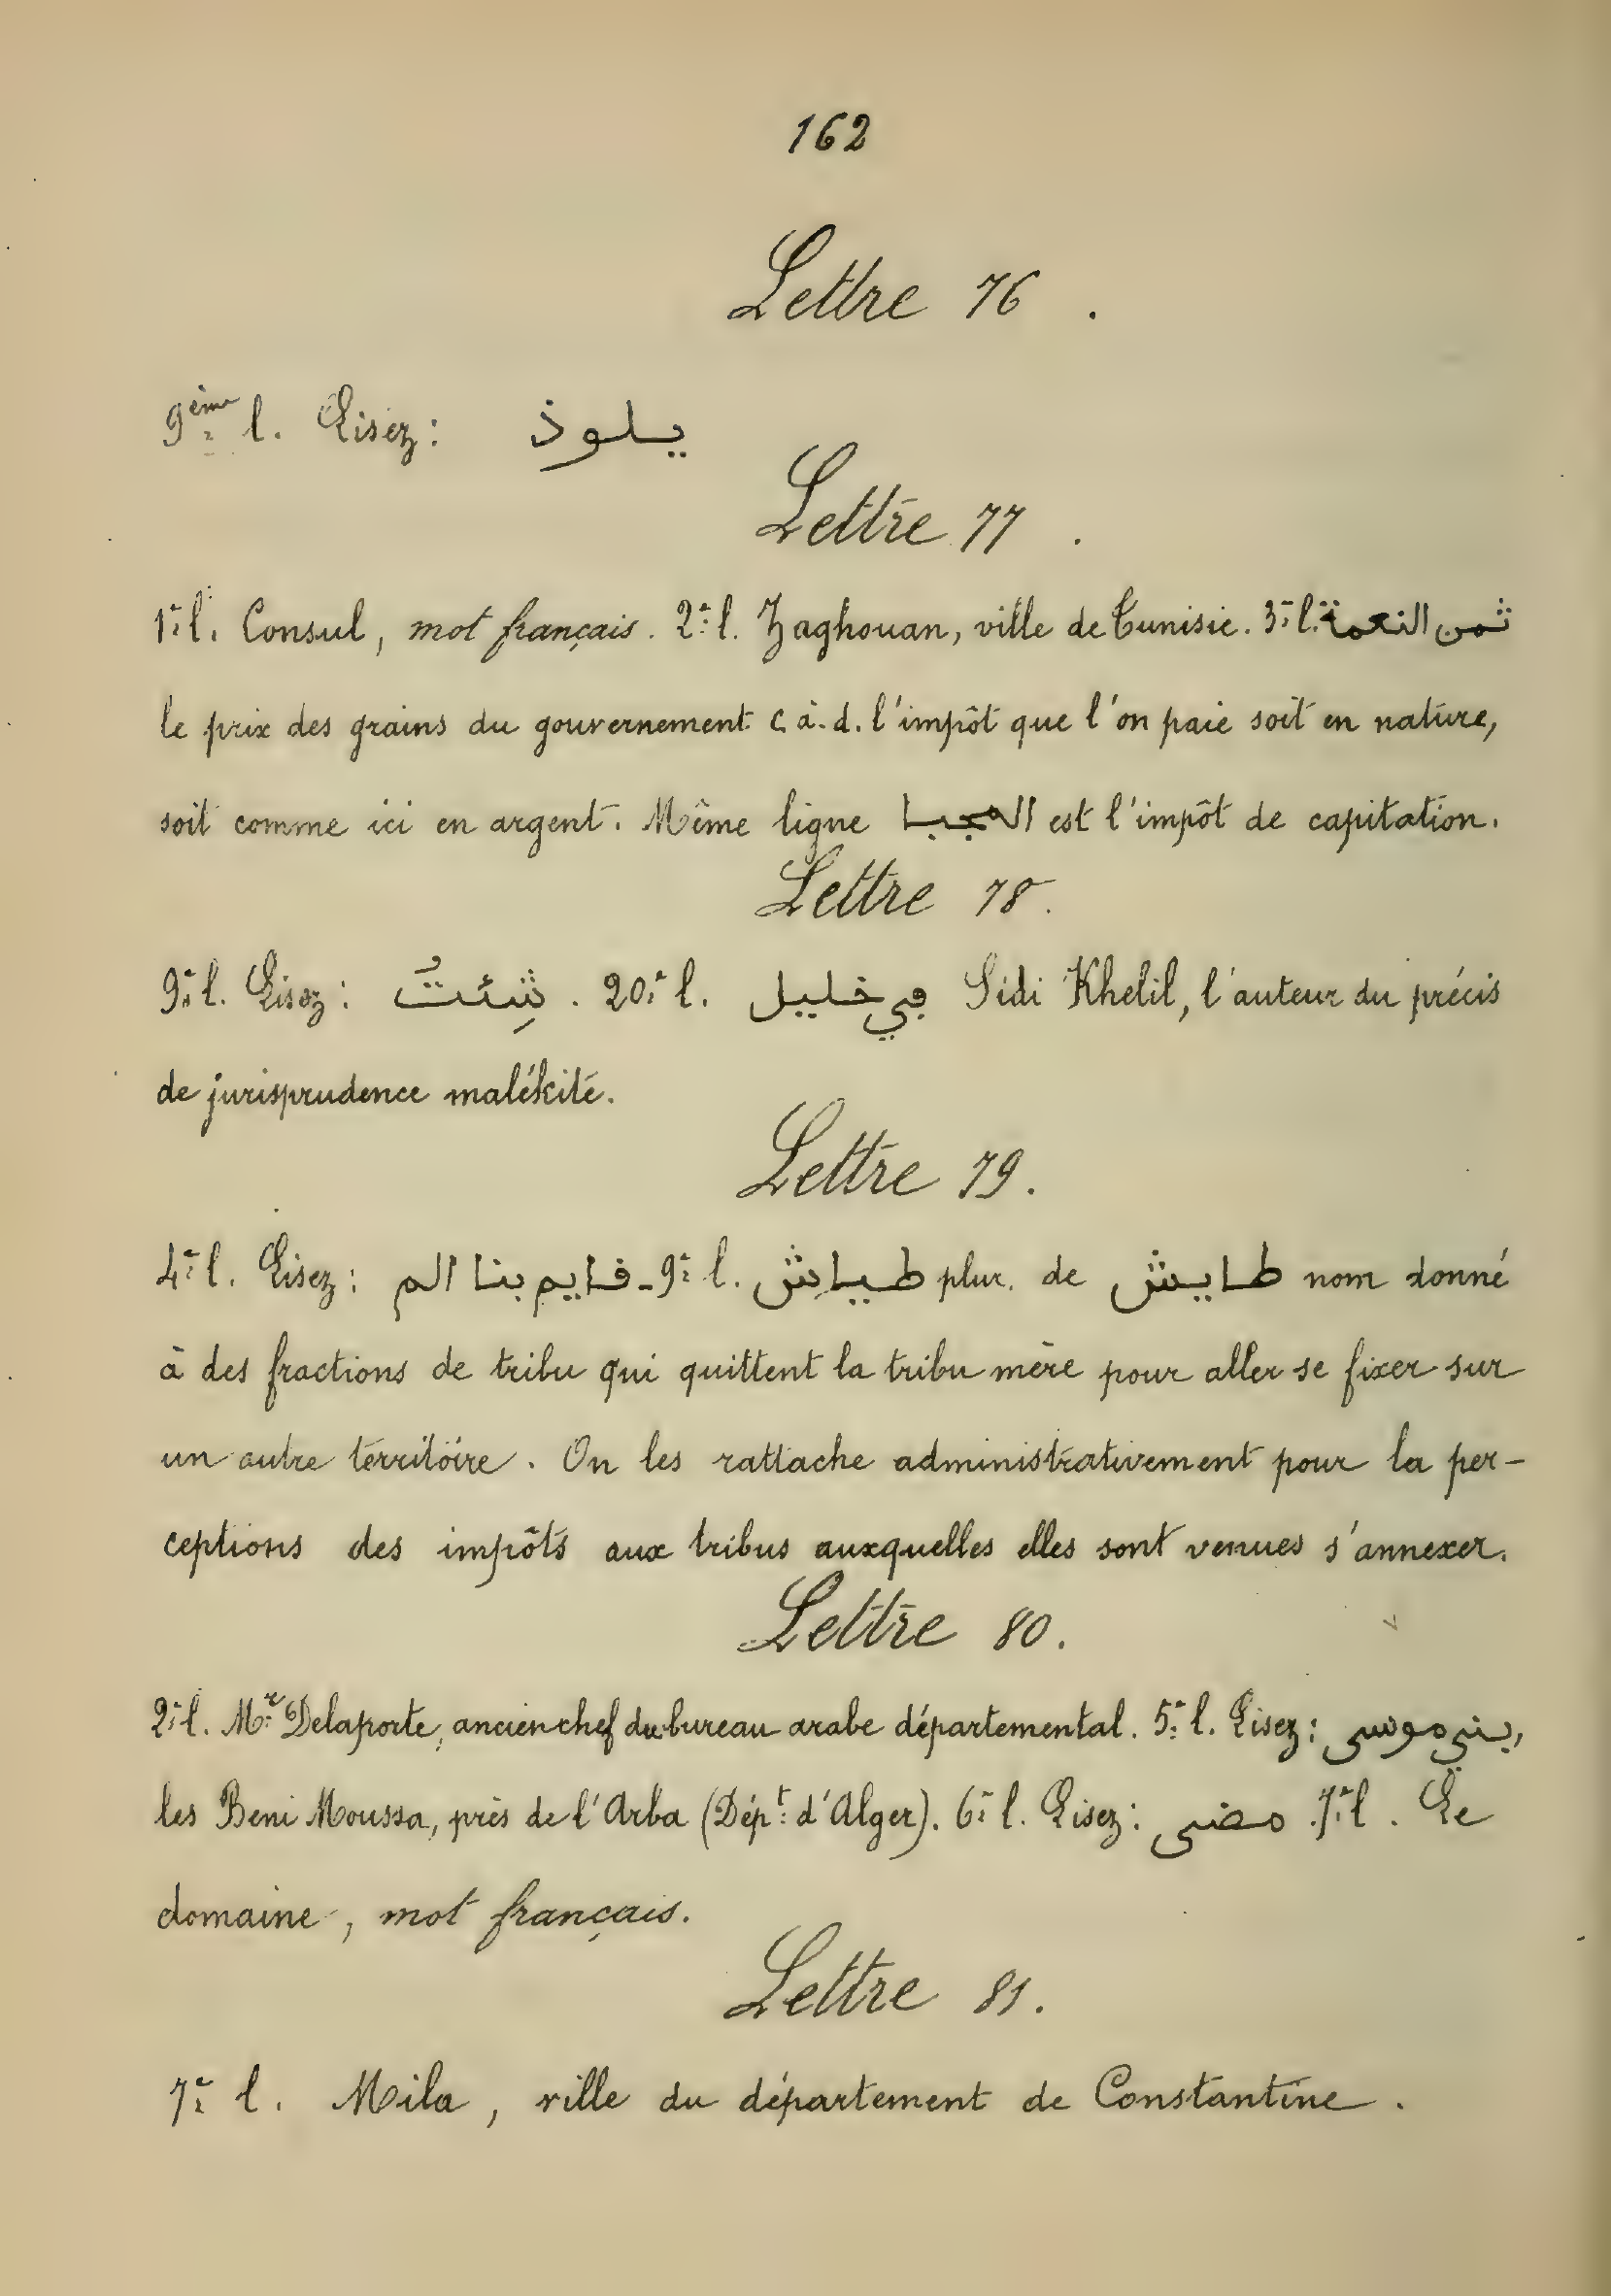 162
Lettre 76.
9ème l. Lisez: يلوذ
Lettre 77.
1e l. Consul, mot français. 2e l. Zaghouan, ville de Tunisie. 3e l. ثمن النعمة
le prix des grains du gouvernement c. à. d. l'impôt que l'on paie soit en nature,
soit comme ici en argent. Même ligne المجبا est l'impôt de capitation.
Lettre 78.
9e l. Lisez: شِئتُ. 20e l. ڢي خليل Sidi Khelil, l'auteur du précis
de jurisprudence malékite.
Lettre 79.
4e l. Lisez: فايم بنا الم - 9e l. طياش plur. de طايش nom donné
à des fractions de tribu qui quittent la tribu mère pour aller se fixer sur
un autre territoire. On les rattache administrativement pour la per-
ceptions des impôts aux tribus auxquelles elles sont venues s'annexer.
Lettre 80.
2e l. Mr Delaporte, ancien chef du bureau arabe départemental. 5e l. Lisez: بني موسى,
les Beni Moussa, près de l'Arba (Dépt d'Alger). 6e l. Lisez: مضى. 7e l. Le
domaine, mot français.
Lettre 81.
7e l. Mila, ville du département de Constantine.